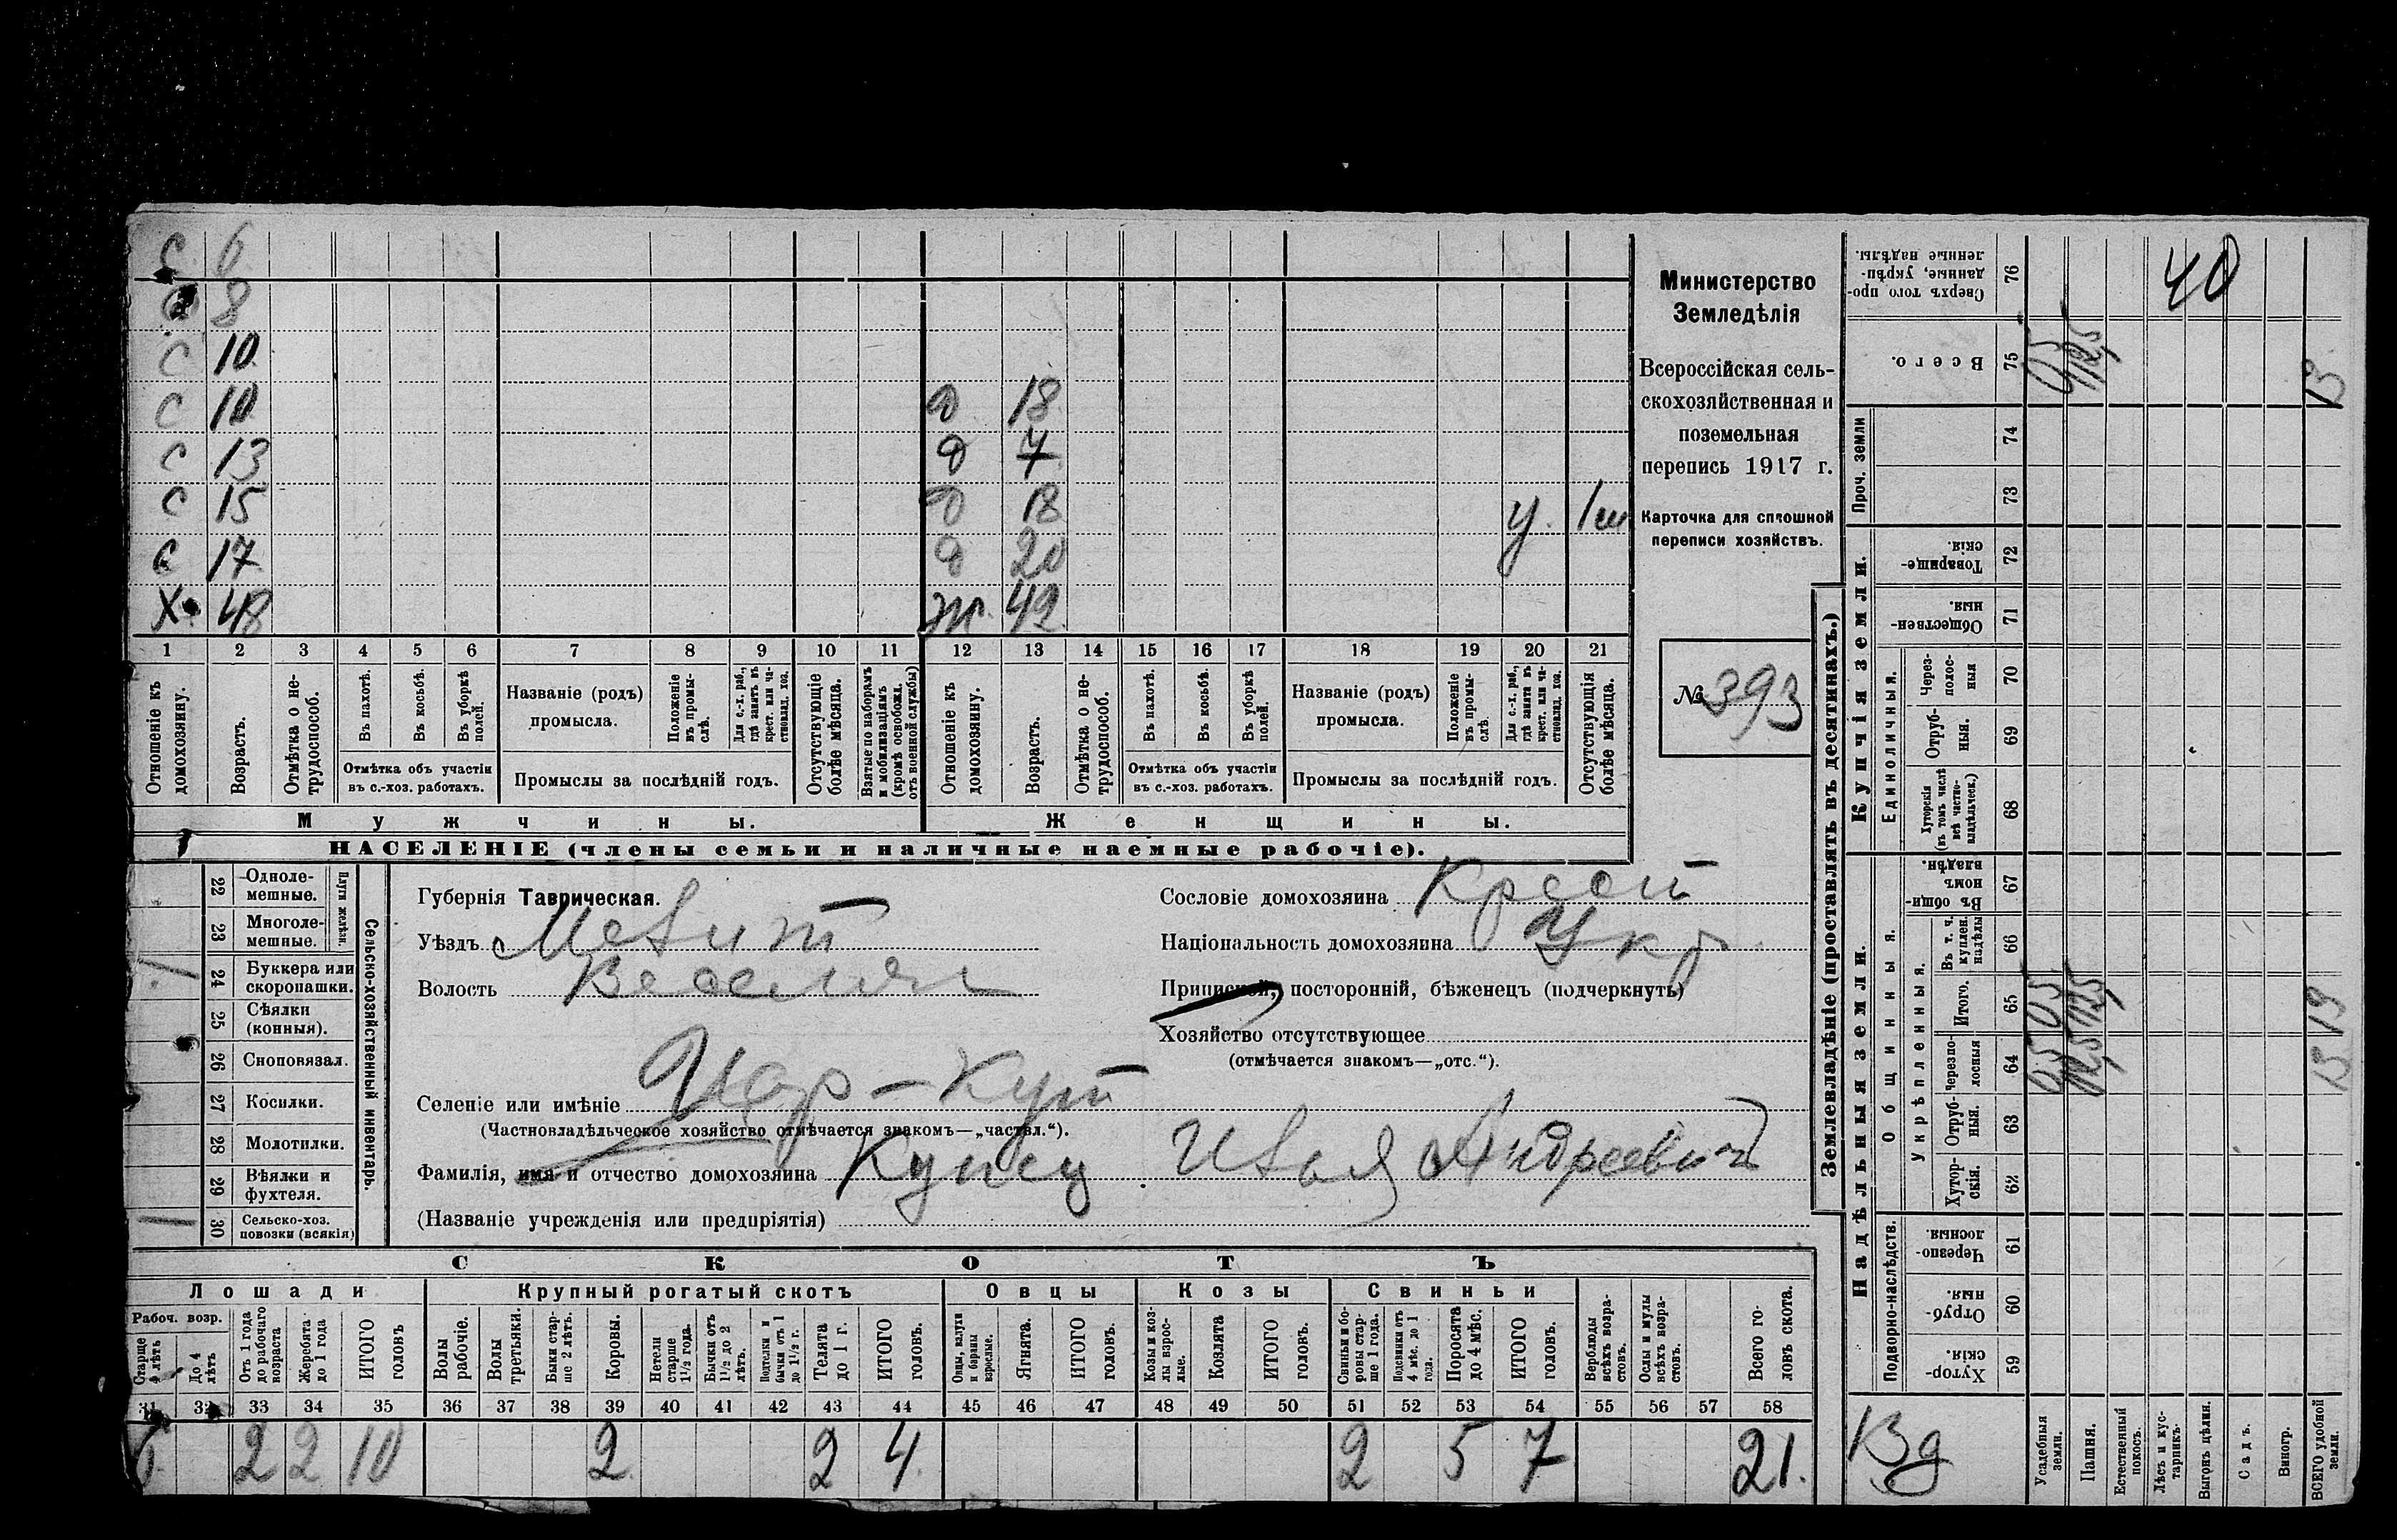 С 6
8
С 10
С 10 Д 18
С 13 Д 7
С 15 Д 18 У. 1 ш
С 17 Д 20
Х. 48 Ж. 42
1 2 3 4 5 6 7 8 9 10 11 12 13 14 15 16 17 18 19 20 21
Отношеніе къ домохозяину.
Возрастъ.
Отмѣтка о нетрудоспособ.
Въ пахотѣ.
Въ косьбѣ.
Въ уборкѣ полей.
Отмѣтка объ участіи въ с.-хоз. работахъ.
Названіе (родъ) промысла.
Положеніе въ промыслѣ.
Для с.-х. раб., гдѣ занятъ въ крест. или частновлад. хоз.
Промыслы за послѣдній годъ.
Отсутствующіе болѣе мѣсяца.
Взятые по наборамъ и мобилизаціямъ (кромѣ освобожд. отъ военной службы)
Отношеніе къ домохозяину.
Возрастъ.
Отмѣтка о нетрудоспособ.
Въ пахотѣ.
Въ косьбѣ.
Въ уборкѣ полей.
Отмѣтка объ участіи въ с.-хоз. работахъ.
Названіе (родъ) промысла.
Положеніе въ промыслѣ.
Для с.-х. раб., гдѣ занята въ крест. или частновлад. хоз.
Промыслы за послѣдній годъ.
Отсутствующія болѣе мѣсяца.
Мужчины. Женщины.
НАСЕЛЕНІЕ (члены семьи и наличные наемные рабочіе).
Министерство
Земледѣлія
Всероссійская сель-
скохозяйственная и
поземельная
перепись 1917 г.
Карточка для сплошной
переписи хозяйствъ.
№ 393
22 Однолемешные.
23 Многолемешные.
Плуги желѣзн.
24 Буккера или скоропашки.
25 Сѣялки (конныя).
26 Сноповязал.
27 Косилки.
28 Молотилки.
29 Вѣялки и фухтеля.
30 Сельско-хоз. повозки (всякія)
Сельско-хозяйственный инвентарь.
Губернія Таврическая.
Уѣздъ Мелит
Волость
Селеніе или имѣніе Цар-Кут
(Частновладѣльческое хозяйство отмѣчается знакомъ—„частвл.“).
Фамилія, имя и отчество домохозяина Купец Илья Андреевич
(Названіе учрежденія или предпріятія)
Сословіе домохозяина Крест
Національность домохозяина Укр
Приписной, посторонній, бѣженецъ (подчеркнуть)
Хозяйство отсутствующее
(отмѣчается знакомъ—„отс.“).
СКОТЪ
Лошади Крупный рогатый скотъ Овцы Козы Свиньи
Рабоч. возр.
Старше 4 лѣтъ
До 4 лѣтъ
Отъ 1 года до рабочаго возраста
Жеребята до 1 года
ИТОГО головъ
Волы рабочіе.
Волы третьяки.
Быки старше 2 лѣтъ.
Коровы.
Нетели старше 1½ года.
Бычки отъ 1½ до 2 лѣтъ.
Подтелки и бычки отъ 1 до 1½ г.
Телята до 1 г.
ИТОГО головъ.
Овцы, валухи и бараны взрослые.
Ягнята.
ИТОГО головъ.
Козы и козлы взрослые.
Козлята
ИТОГО головъ.
Свиньи и боровы старше 1 года.
Подсвинки отъ 4 мѣс. до 1 года.
Поросята до 4 мѣс.
ИТОГО головъ.
Верблюды всѣхъ возрастовъ.
Ослы и мулы всѣхъ возрастовъ.
Всего головъ скота.
31 32 33 34 35 36 37 38 39 40 41 42 43 44 45 46 47 48 49 50 51 52 53 54 55 56 57 58
2 2 10 2 2 4 2 5 7 21.
Землевладѣніе (проставлять въ десятинахъ.)
Купчія земли.
Надѣльныя земли.
76 Сверхъ того проданные, укрѣпленные надѣлы. 40
75 Всего. 13
Проч. земли
74
73
72 Товарищескія.
71 Общественныя.
Единоличныя.
70 Черезполосныя
69 Отрубныя.
68 Хуторскія (въ томъ числѣ всѣ частновладѣльческ.)
67 Въ общиномъ владѣн.
Общинныя.
Укрѣпленныя.
66 Въ т. ч. куплен. надѣлы
65 Итого.
64 Черезполосныя
63 Отрубныя.
62 Хуторскія.
Подворно-наслѣдств.
61 Черезполосныя
60 Отрубныя.
59 Хуторскія
Усадебныя земли.
Пашня.
Естественный покосъ.
Лѣсъ и кустарникъ.
Выгонъ цѣлин.
Садъ.
Виногр.
ВСЕГО удобной земли.